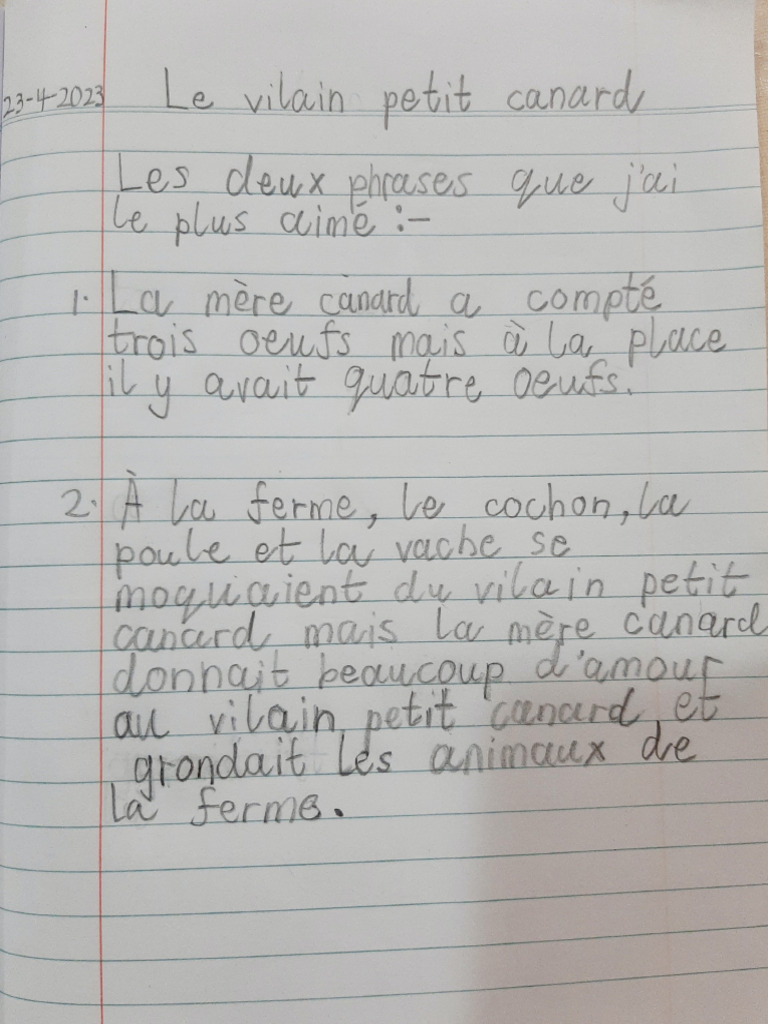 23-4-2023 Le vilain petit canard
Les deux phrases que j'ai
le plus aimé :-
1. La mère canard a compté
trois oeufs mais à la place
il y avait quatre oeufs.
2. À la ferme, le cochon, la
poule et la vache se
moquaient du vilain petit
canard mais la mère canard
donnait beaucoup d'amour
au vilain petit canard et
grondait les animaux de
la ferme.